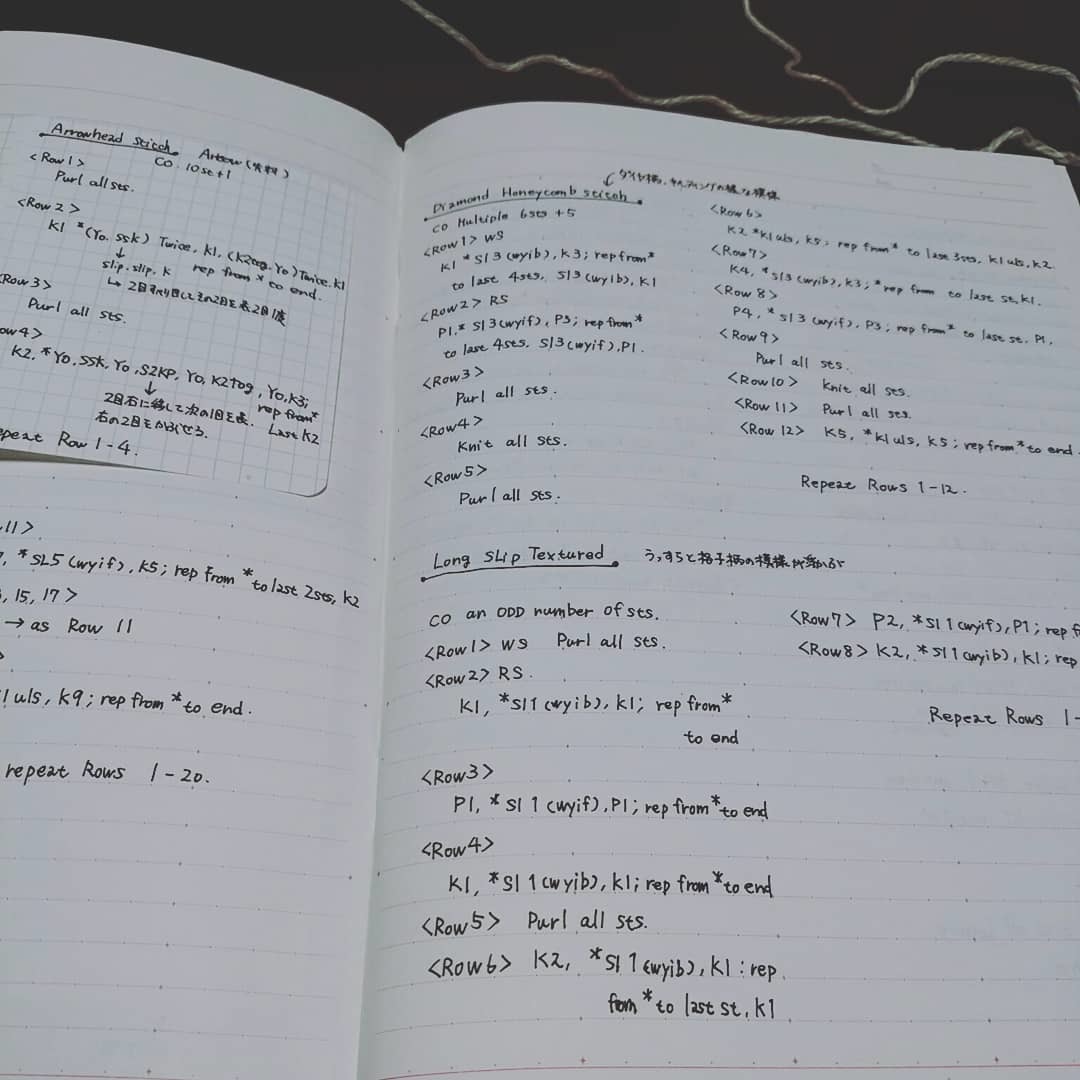 Arrowhead Stitch. Arrow (矢羽)
CO. 10st+1
<Row 1>
Purl all sts.
<Row 2>
K1 *(Yo. SSK) Twice, K1, (K2tog. Yo) Twice. K1
↓
slip. slip. K rep from * to end.
<Row3>
Purl all sts.
ow4>
K2, *Yo, SSK, Yo, S2KP, Yo, K2tog, Yo, K3;
↓ rep from*
2目右に移して次の1目を表. Last K2
右の2目をかぶせる.
epeat Row 1-4.
11>
, *SL5 (wyif), K5; rep from * to last 2sts, K2
, 15, 17>
→ as Row 11
>
1 uls, K9; rep from * to end.
repeat Rows 1-20.
Diamond Honeycomb stitch.
CO Multiple 6sts +5
<Row1> WS
K1 * Sl3 (wyib), K3; rep from*
to last 4sts, Sl3 (wyib), K1
<Row2> RS
P1.* Sl3 (wyif), P3; rep from*
to last 4sts. Sl3 (wyif), P1.
<Row3>
Purl all sts.
<Row4>
Knit all sts.
<Row5>
Purl all sts.
<Row6>
K2 *K1 uls, K5; rep from* to last 3sts, K1 uls, K2.
<Row7>
K4, *Sl3 (wyib), K3; *rep from to last st, K1.
<Row 8>
P4, * Sl3 (wyif), P3; rep from* to last st. P1.
<Row9>
Purl all sts.
<Row10> Knit all sts.
<Row 11> Purl all sts.
<Row 12> K5, *K1 uls, K5; rep from* to end.
Repeat Rows 1-12.
Long Slip Textured. うっすらと格子柄の模様が浮かぶ
CO an ODD number of sts.
<Row1> WS Purl all sts.
<Row2> RS.
K1, *Sl1 (wyib), K1; rep from*
to end
<Row3>
P1, *Sl1 (wyif), P1; rep from* to end
<Row4>
K1, *Sl1 (wyib), K1; rep from* to end
<Row5> Purl all sts.
<Row6> K2, *Sl1 (wyib), K1: rep
from * to last st, K1
<Row7> P2, *Sl1 (wyif), P1; rep f
<Row8> K2, *Sl1 (wyib), K1; rep
Repeat Rows 1-